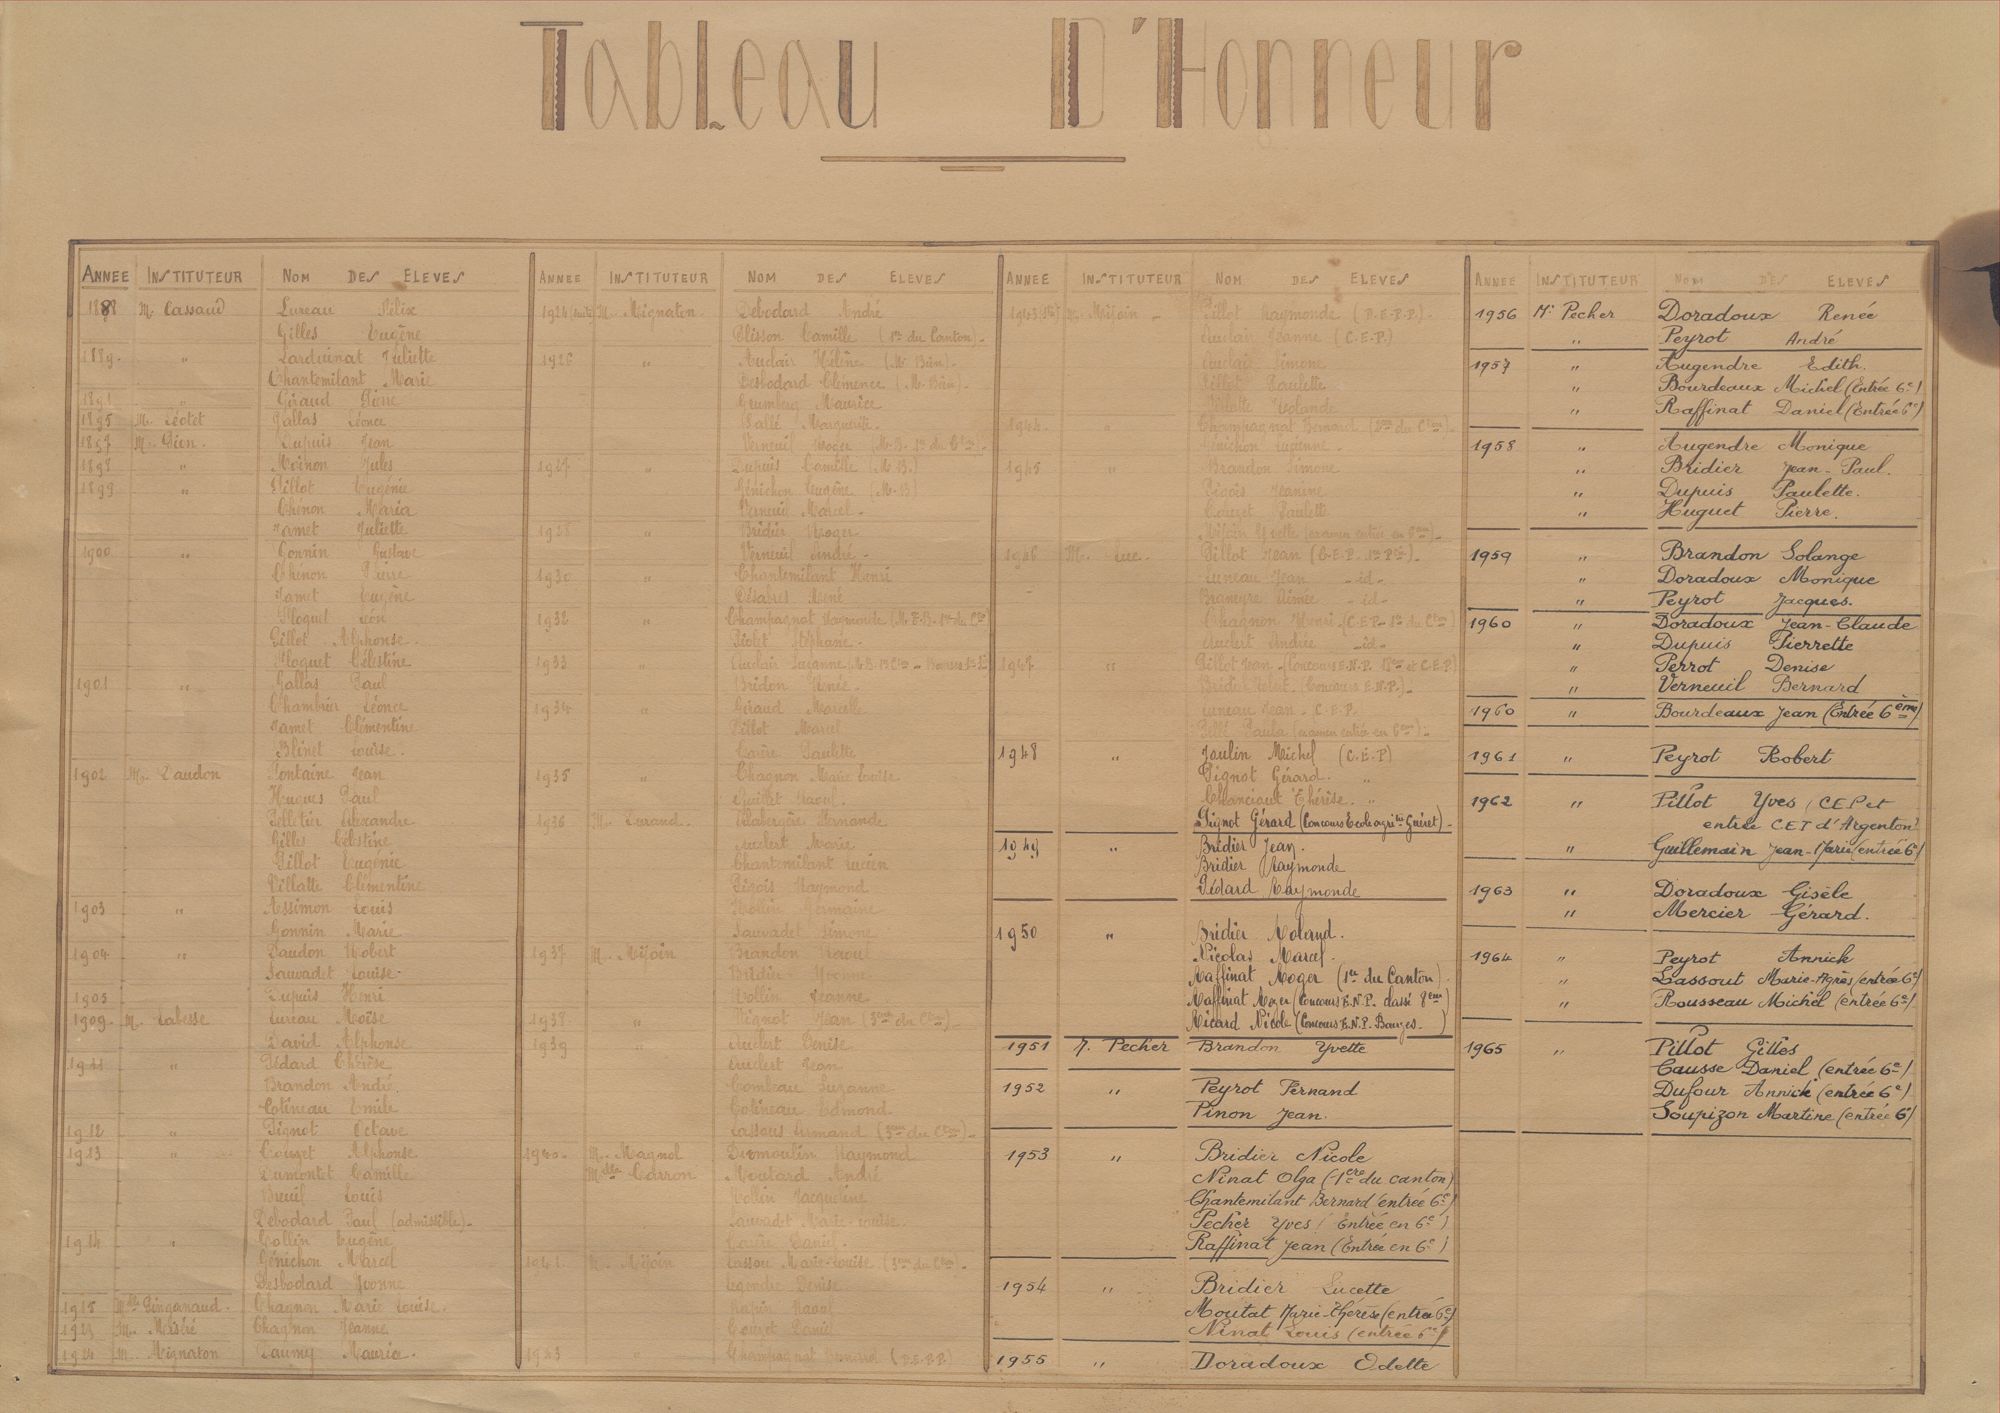 Tableau D'Honneur
ANNEE INSTITUTEUR NOM DES ELEVES
1888 M. Cassaud Lureau Félix
Gilles Eugène
1889. " Larduinat Juliette
Chantemilant Marie
1891 " Giraud Pierre
1895 M. Léotet Gallas Léonce
1897 M. Gien. Dupuis Jean
1898 " Moinon Jules
1899 " Pillot Eugénie
Chénon Maria
Jamet Juliette
1900 " Gonnin Gustave
Chénon Pierre
Jamet Eugène
Floquet Léon
Pillot Alphonse.
Floquet Célestine
1901 " Gallas Paul
Chambrier Léonce
Jamet Clémentine
Blinet Louise.
1902 M. Daudon Fontaine Jean
Hugues Paul
Pelletier Alexandre
Gilles Célestine
Pillot Eugénie
Villatte Clémentine
1903 " Assimon Louis
Gonnin Marie
1904 " Daudon Robert
Sauvadet Louise
1905 Dupuis Henri
1909 M. Labesse Lureau Moïse
David Alphonse
1911 " Dédard Thérèse
Brandon André.
Cotineau Emile
1912 " Pignot Octave
1913 " Crouzet Alphonse
Dumontet Camille
Breuil Louis
Debodard Paul (admissible)
1914 " Rollin Eugène
Génichon Marcel
Desbodard Yvonne
1918 Mlle Pinganaud. Chagnon Marie Louise.
1921 M. Miséré Chagnon Jeanne
1924 M. Mignaton Daumy Maurice.
ANNEE INSTITUTEUR NOM DES ELEVES
1924 (suite) M. Mignaton. Debodard André
Plisson Camille (1er du Canton)
1926 " Auclair Hélène (M. Bien)
Desbodard Clémence (M. Bien)
Grumberg Maurice
Marguerite.
Verneuil Roger (M.B. 1er du Cton)
1927 " Dupuis Camille (M.B.)
Génichon Eugène (M.B)
Verneuil Marcel
1928 " Bridier Roger
Verneuil André
1930 " Chantemilant Henri
Désabres René
1932 " Champagnat Raymonde
Piolet Stéphane
1933 " Auclair Suzanne
Bridon Renée
1934 " Giraud Marcelle
Pillot Marcel
Carire Paulette
1935 " Chagnon Marie Louise
Guillet Raoul.
1936 M. Durand. Delabergère Fernande
Auclert Marie
Chantemilant Lucien
Pigois Raymond
Rollin Germaine
Sauvadet Simone
1937 M. Mijoin Brandon Raoul
Bridier Yvonne
Rollin Jeanne
1938 " Vignot Jean (3ème du Cton)
1939 " Auclert Denise
Auclert Jean
Combeau Suzanne
Cotineau Edmond
Lassous Armand (3ème du Cton)
1940. M. Magnol Dumoulin Raymond
Mlle Carron Moutard André
Rollin Jacqueline
Sauvadet Marie-Louise.
Carire Daniel
1941 M. Mijoin Lassou Marie-Louise (3ème du Cton)
Legendre Denise
Rapin Raoul
Couzet Daniel
1943 " Champagnat Bernard (D.E.P.P)
ANNEE INSTITUTEUR NOM DES ELEVES
1943 (ste) M. Mijoin Pillot Raymonde (D.E.P.P)
Auclair Jeanne (C.E.P)
Auclair Simone
Pillot Paulette
Villatte Yolande
1944. " Champagnat Bernard (2ème du Cton)
Génichon Lucienne
1945 " Brandon Simone
Pigois Jeanine
Couzet Paulette
Mijoin Yvette (examen entrée en 6ème)
1946 M. Luc Pillot Jean (C.E.P. 1er Prix)
Luneau Jean - id -
Braneyre Aimée - id -
Chagnon Henri (C.E.P. 1er du Cton)
Auclert Andrée - id -
1947 " Pillot Jean (Concours E.N.P. 18ème et C.E.P)
Bridier Robert (Concours E.N.P.)
Luneau Jean. C.E.P.
Paula (examen entrée en 6ème)
1948 " Jaulin Michel (C.E.P)
Pignot Gérard. "
Chanciaut Thérèse. "
Pignot Gérard (Concours Ecole agri. Guéret)
1949 " Bridier Jean.
Bridier Raymonde
Dédard Raymonde
1950 " Bridier Roland.
Nicolas Marcel.
Raffinat Roger (1er du Canton)
Raffinat Roger (Concours E.N.P. classé 8ème)
Ricard Nicole (Concours E.N.P. Bourges.)
1951 M. Pecher Brandon Yvette
1952 " Peyrot Fernand
Pinon Jean.
1953 " Bridier Nicole
Ninat Olga (1ère du canton)
Chantemilant Bernard (entrée 6e)
Pecher Yves (Entrée en 6e)
Raffinat Jean (Entrée en 6e)
1954 " Bridier Lucette
Moutat Marie-Thérèse (entrée 6e)
Ninat Louis (entrée 6e)
1955 " Doradoux Odette
ANNEE INSTITUTEUR NOM DES ELEVES
1956 Mr Pecher Doradoux Renée
" Peyrot André
1957 " Augendre Edith.
" Bourdeaux Michel (Entrée 6e)
" Raffinat Daniel (Entrée 6e)
1958 " Augendre Monique
" Bridier Jean-Paul.
" Dupuis Paulette.
" Huguet Pierre.
1959 " Brandon Solange
" Doradoux Monique
" Peyrot Jacques.
1960 " Doradoux Jean-Claude
" Dupuis Pierrette
" Perrot Denise
" Verneuil Bernard
1960 " Bourdeaux Jean (Entrée 6ème)
1961 " Peyrot Robert
1962 " Pillot Yves (CEP et
entrée CET d'Argenton)
" Guillemain Jean-Marie (entrée 6e)
1963 " Doradoux Gisèle
" Mercier Gérard.
1964 " Peyrot Annick
" Lassout Marie-Agnès (entrée 6e)
" Rousseau Michel (entrée 6e)
1965 " Pillot Gilles
Causse Daniel (entrée 6e)
Dufour Annick (entrée 6e)
Soupizon Martine (entrée 6e)